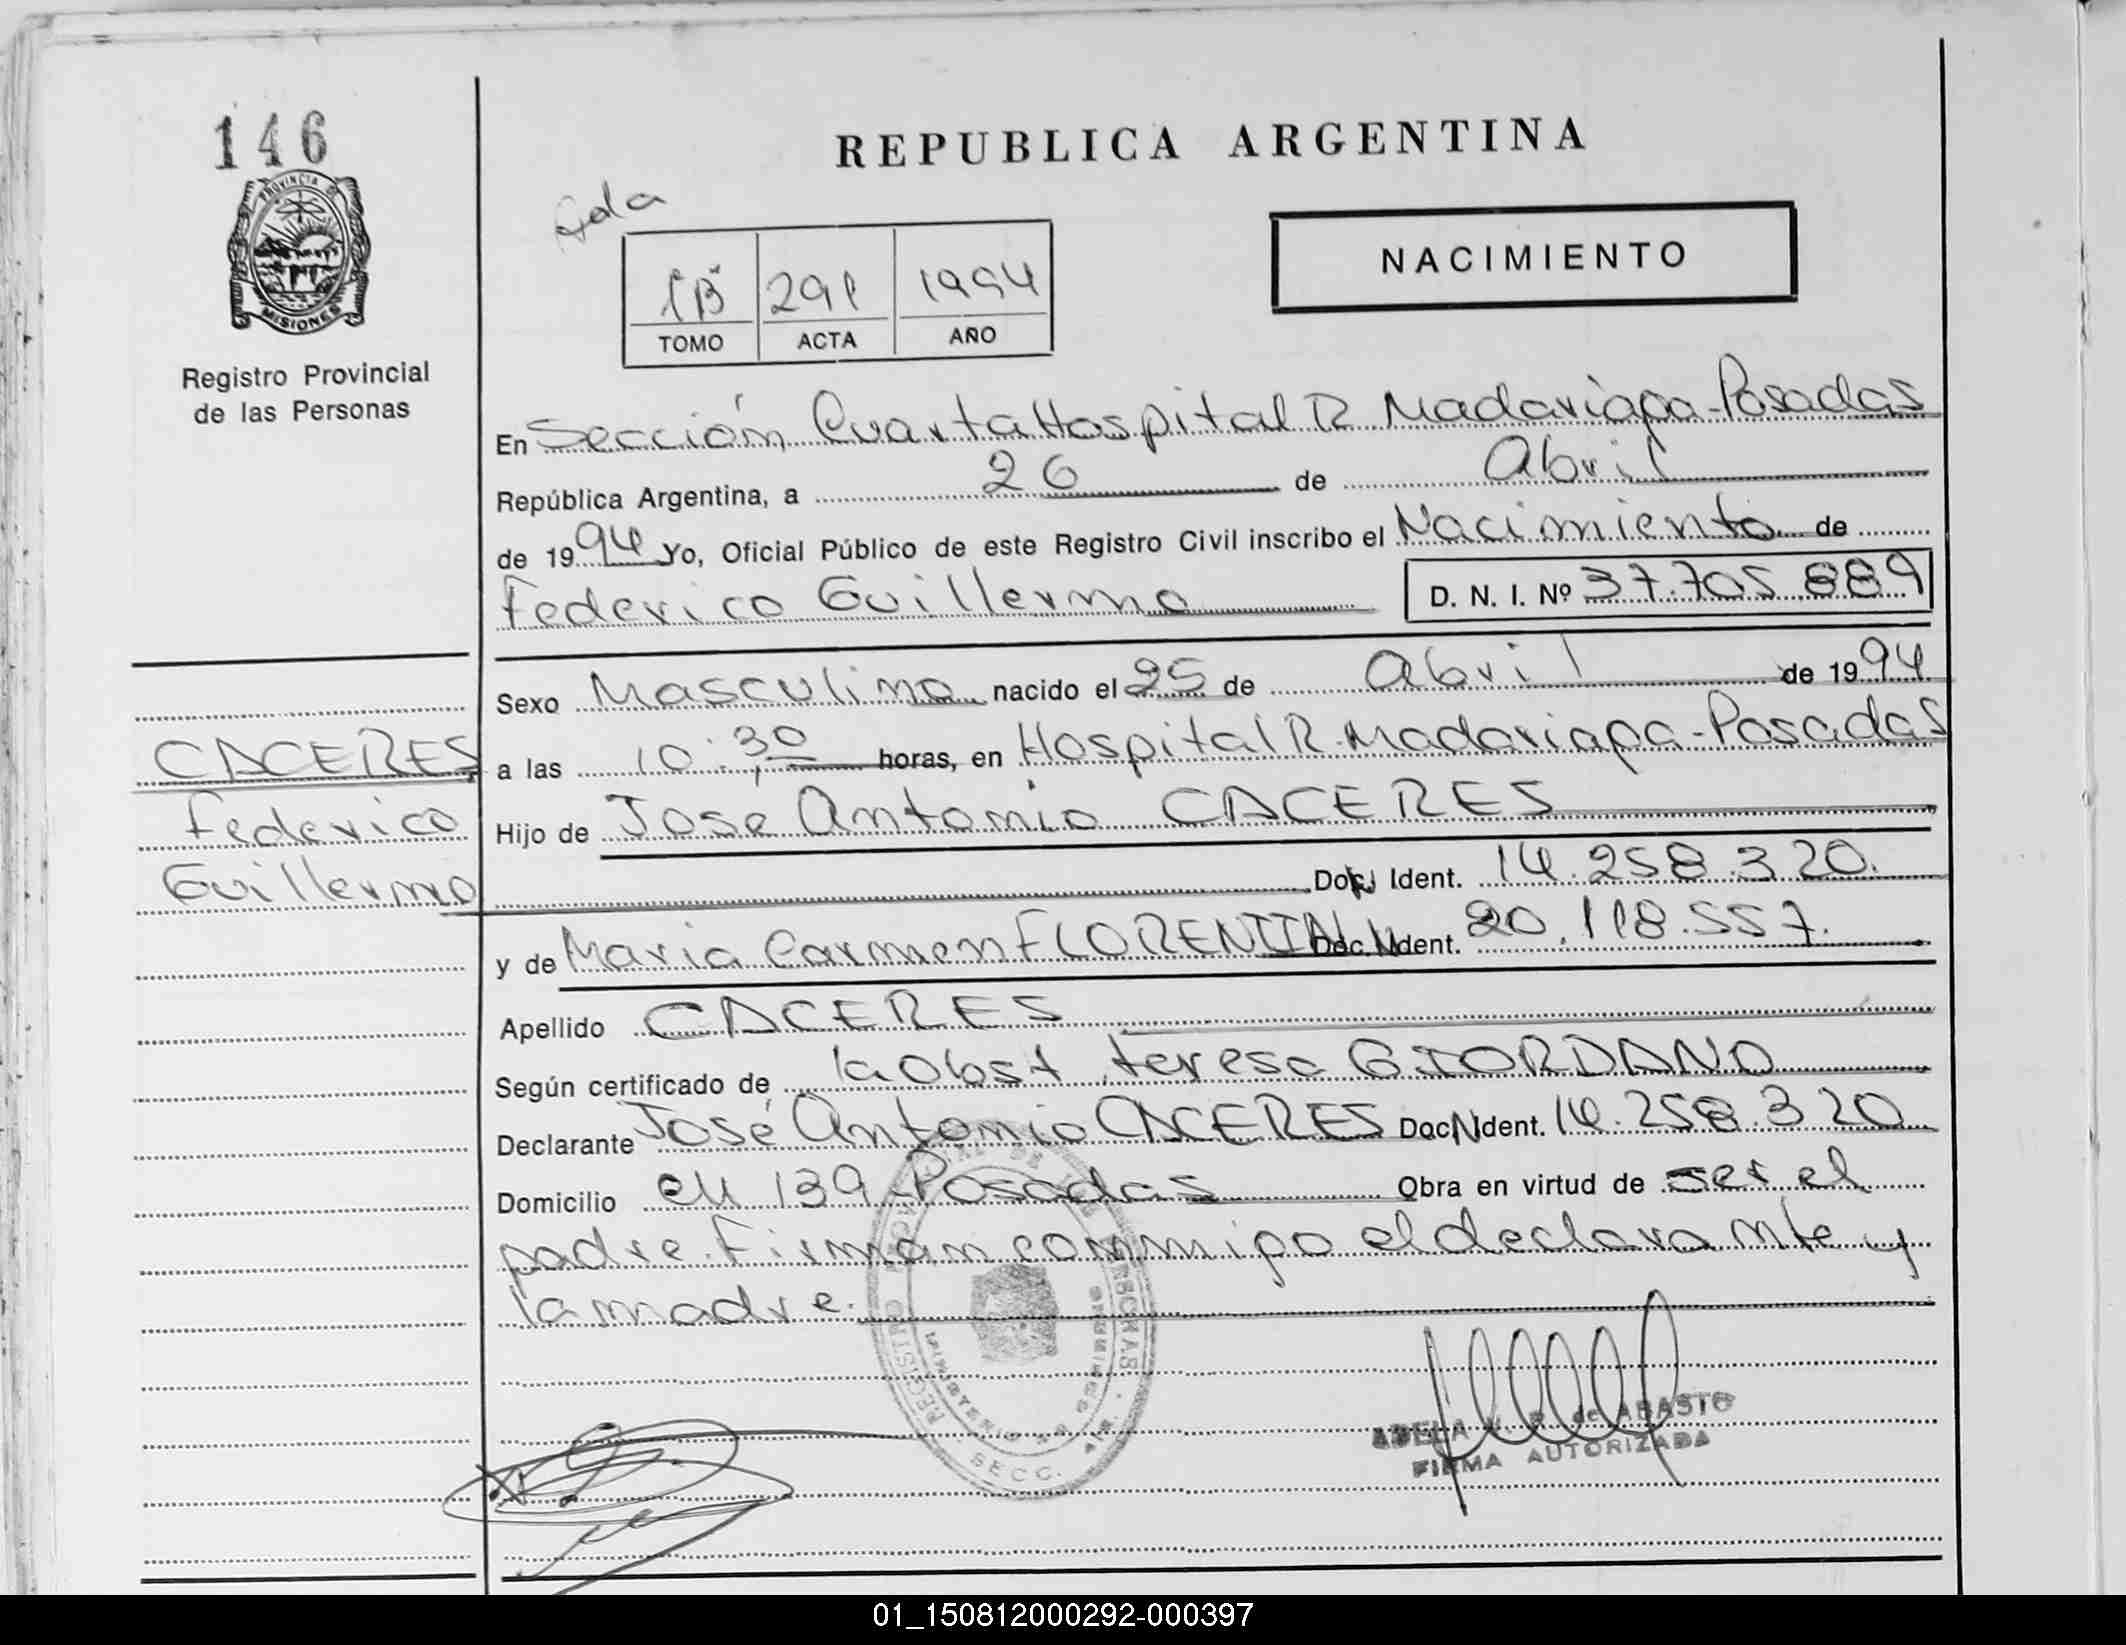 146
REPUBLICA ARGENTINA
PROVINCIA D
MISIONES
Registro Provincial
de las Personas
NACIMIENTO
291 1994
TOMO ACTA AÑO
En Sección Cuarta Hospital R Madariaga - Posadas
República Argentina, a 26 de Abril
de 1994 Yo, Oficial Público de este Registro Civil inscribo el Nacimiento de
Federico Guillermo D. N. I. Nº 37.705.889
Sexo Masculino nacido el 25 de Abril de 1994
CACERES
a las 10:30 horas, en Hospital R. Madariaga - Posadas
Federico
Hijo de José Antonio CACERES
Guillermo
Doc. Ident. 14.258.320.
y de Maria Carmen FLORENTIN Doc. Ident. 20.118.557.
Apellido CACERES
Según certificado de la Obst Teresa GIORDANO
Declarante José Antonio CACERES Doc. Ident. 14.258.320
Domicilio CH 139 Posadas Obra en virtud de ser el
padre. Firman conmigo el declarante y
la madre.
REGISTRO
PERSONAS
SECC.
ADELA de ABASTO
FIRMA AUTORIZADA
01_150812000292-000397